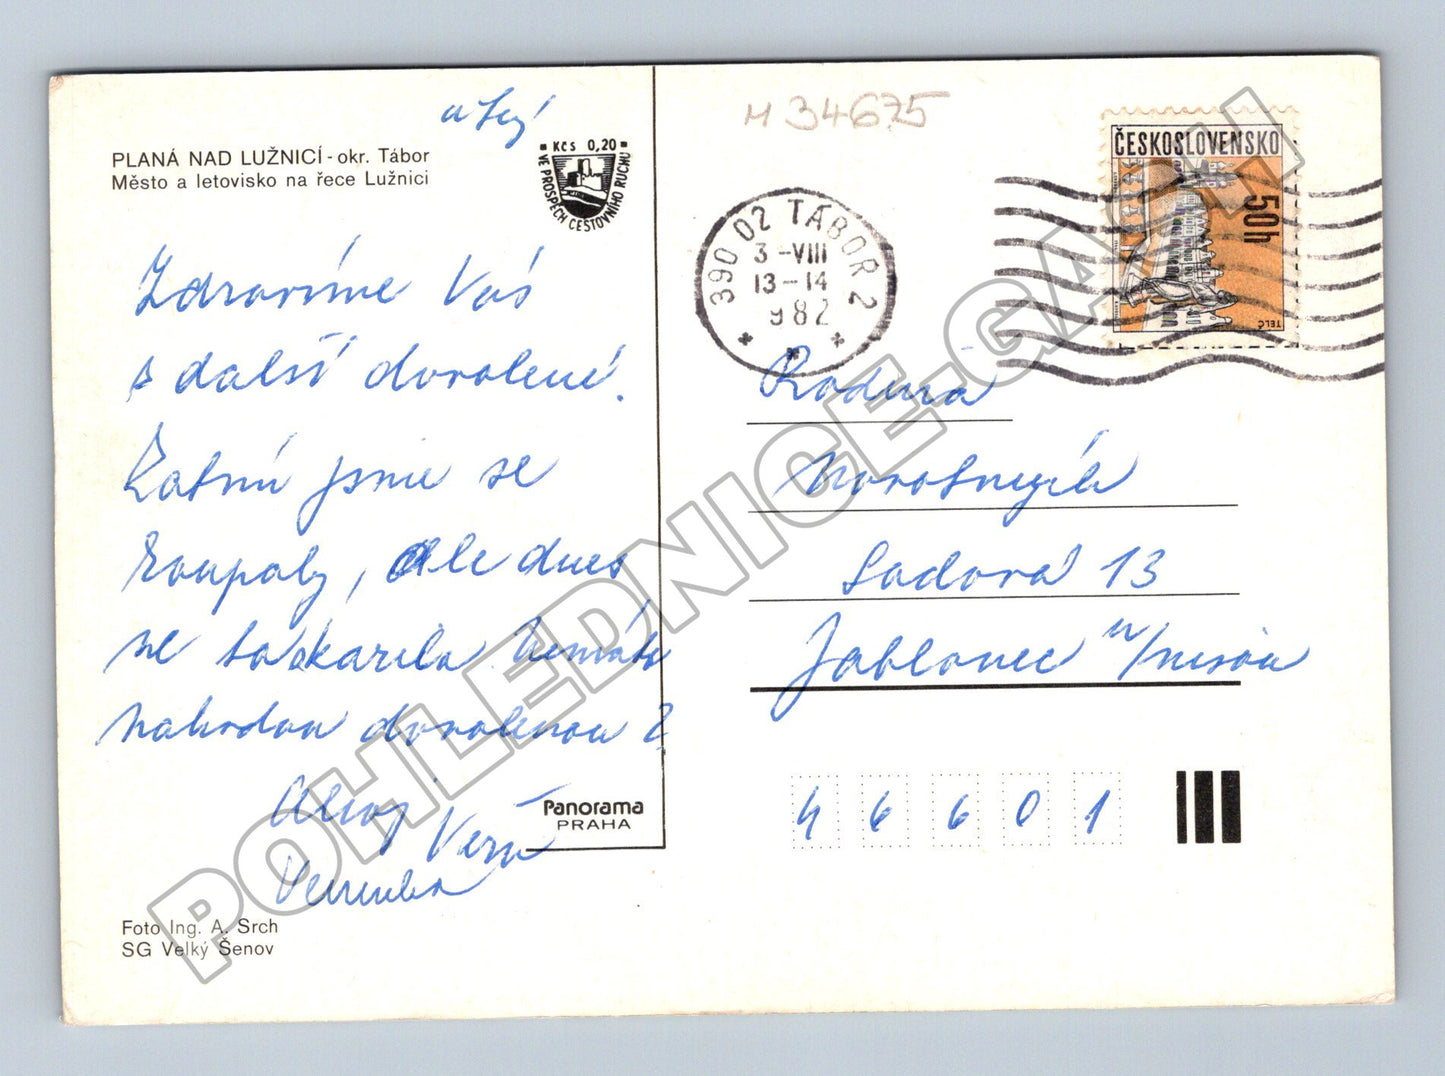 PLANÁ NAD LUŽNICÍ - okr. Tábor
Město a letovisko na řece Lužnici
Kčs 0,20
VE PROSPĚCH CESTOVNÍHO RUCHU
Zdravíme Vás
s další dovolené.
Zatím jsme se
koupaly, ale dnes
se
dovolenou
Alloj Věra
Foto Ing. A. Srch
SG Velký Šenov
Panorama
PRAHA
M 34675
390 02 TÁBOR 2
3-VIII
13-14
982
ČESKOSLOVENSKO
50h
TELČ
Rodina
Sadová 13
Jablonec n/Nisou
46601
POHLEDNICE-GASH